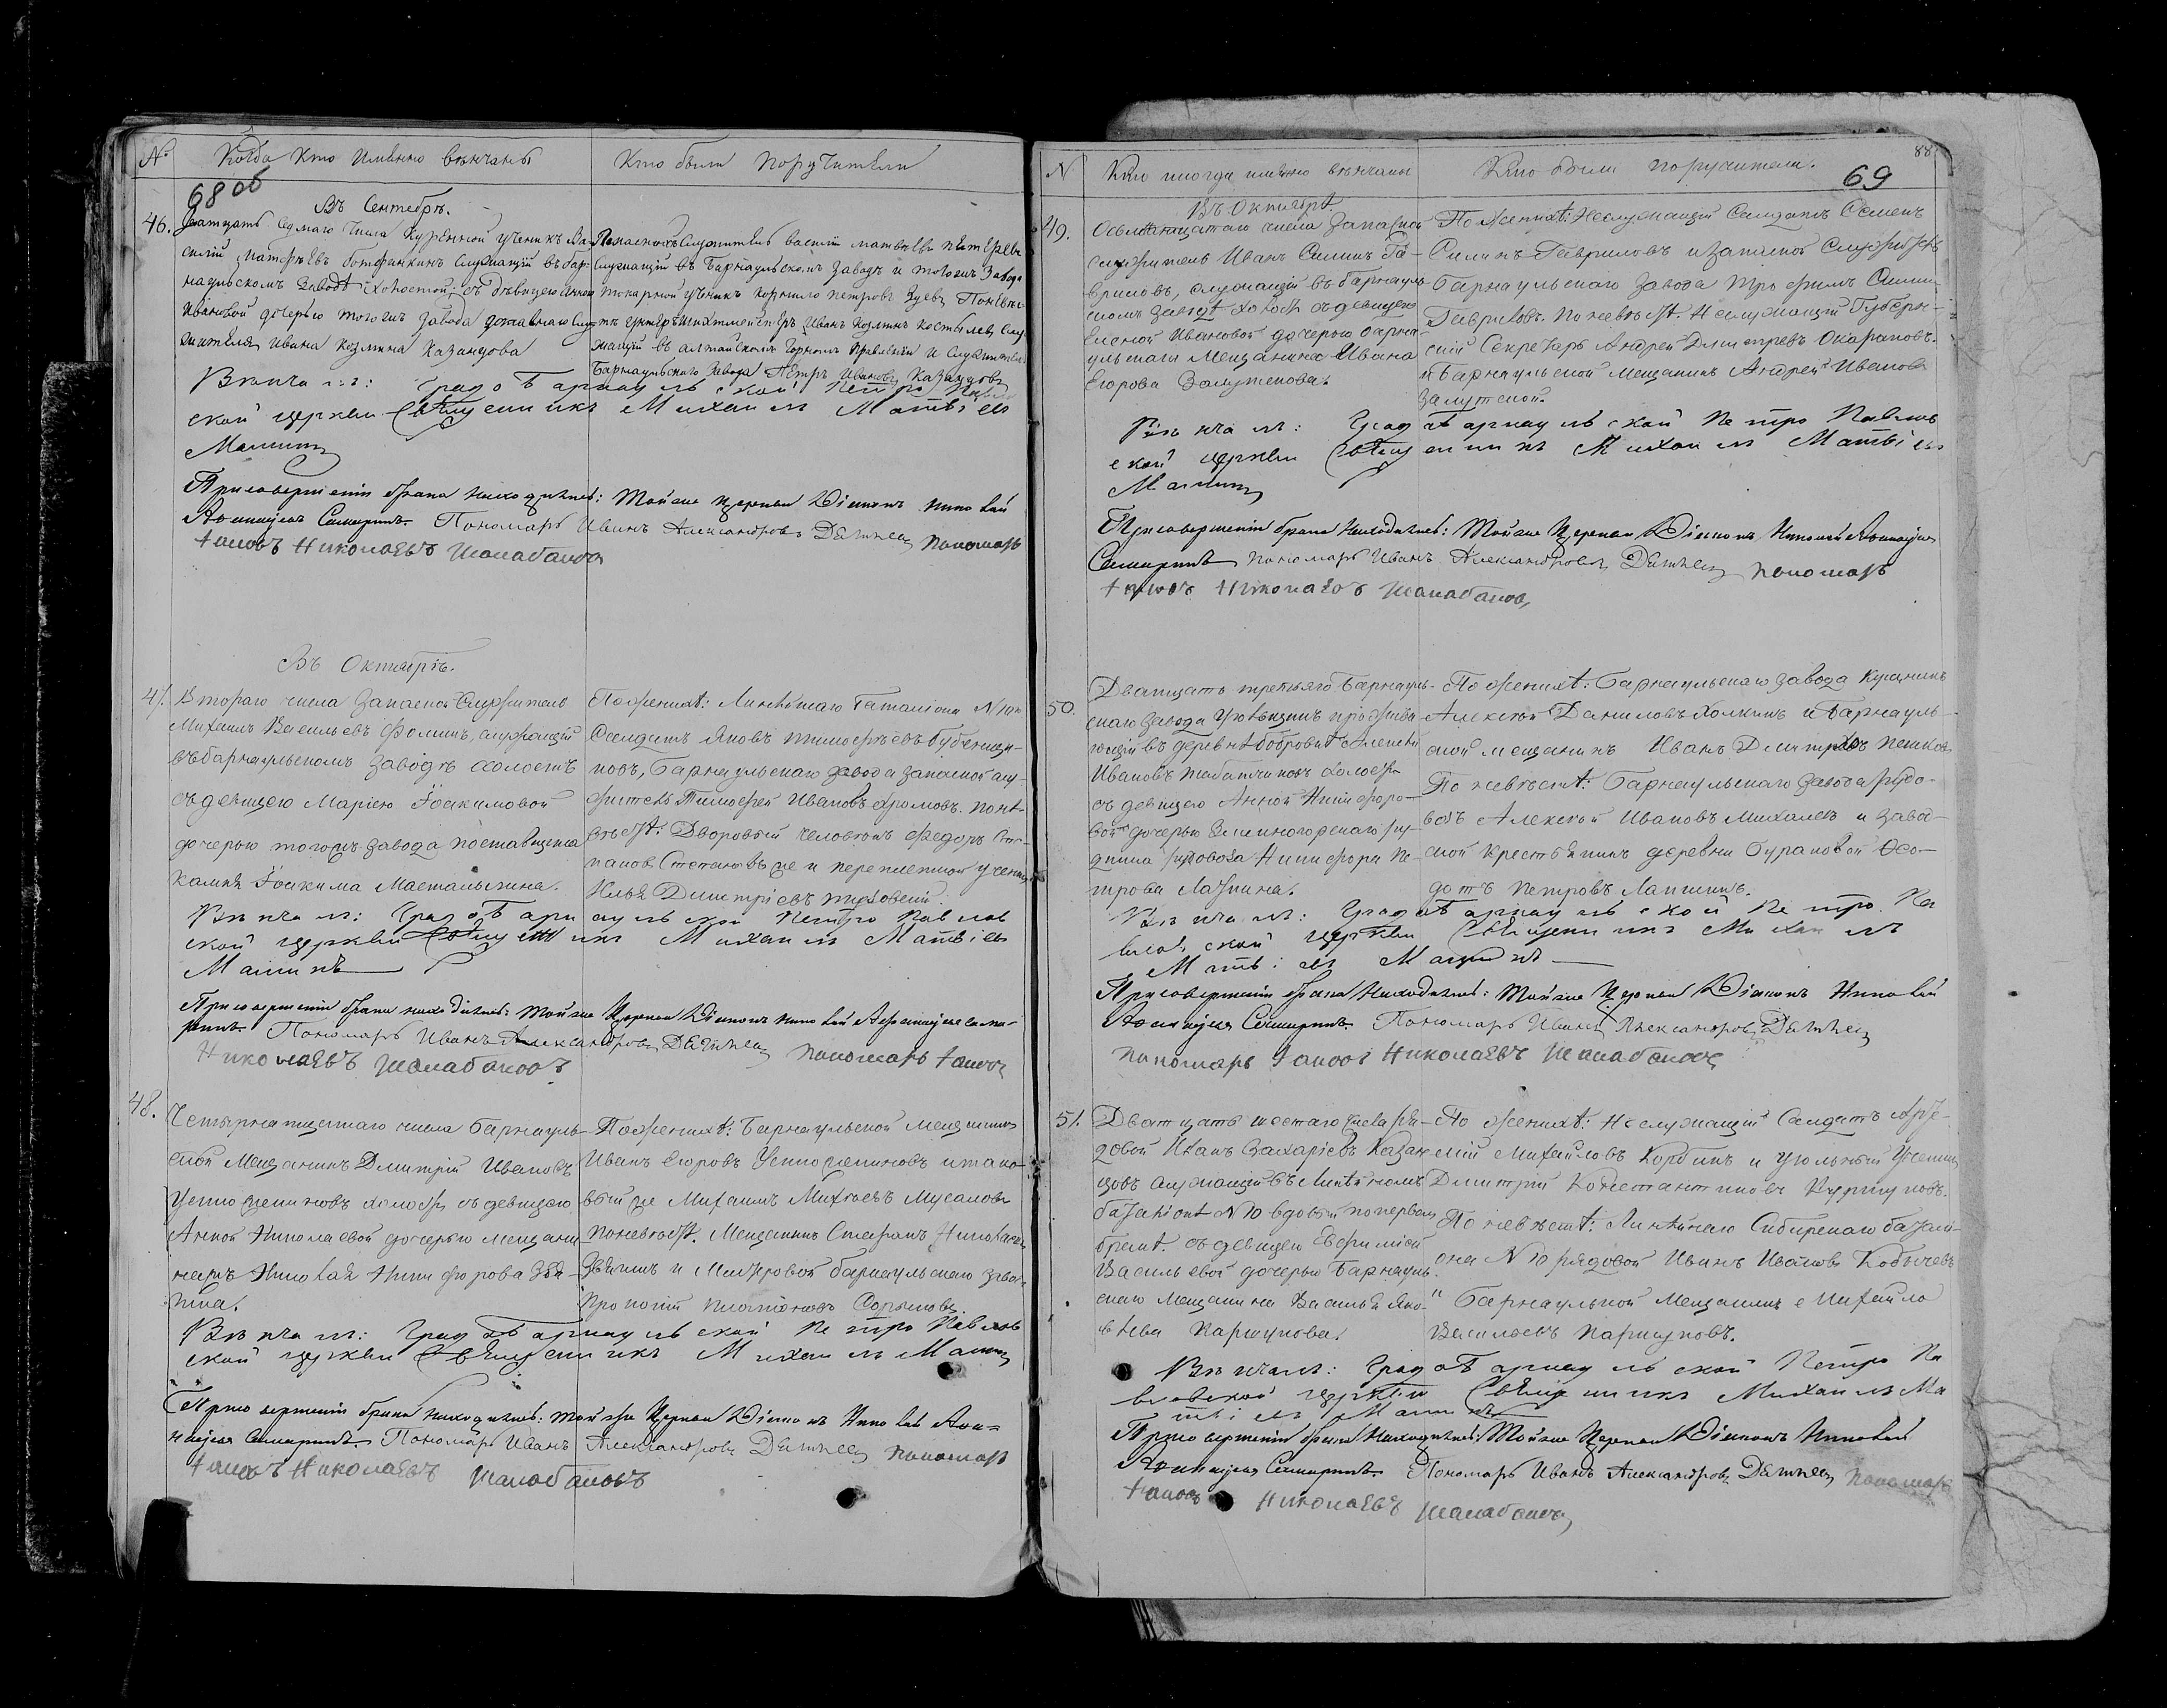 № Когда Кто Именно венчаны
Кто были Поручители
68 об
Въ Сентебрѣ.
46. Дватцать Седмаго Числа Куренной ученикъ Ва-
силій Матфѣевъ Служащій въ бар-
наульскомъ Заводѣ Холостой, съ дѣвицею Анною
Ивановой дочерью тогожъ Завода
жителя Ивана Козмина Казанцова
Служитель Василій Матвѣевъ
Служащій въ Барнаульскомъ Заводѣ и тогожъ Завода
токарной ученикъ Корнило Петровъ Зуевъ По невѣс-
тѣ унтеръ шихтмейстеръ Иванъ Козминъ Костылевъ Слу-
жащій въ алтайскомъ Горномъ Правленіи и Служитель
Барнаульскаго Завода Петръ Ивановъ Казанцовъ
Вѣнчалъ: Градо Барнаульской Петро Павлов
ской церкви Священникъ Михаилъ Матвіевъ
Малинъ
При совершеніи брака находились: Тойже Церкви Діаконъ Николай
Пономарь Иванъ Александровъ пономарь
Николаевъ Шалабановъ
Въ Октябрѣ.
47. Втораго числа Запасной Служитель
Михаилъ Васильевъ Фоминъ, служащій
въ барнаульскомъ заводѣ холостъ
съ девицею Маріею Іоакимовой
дочерью тогожъ завода поставщика
камня Іоакима Масталыгина.
По женихѣ: Линейнаго Баталіона № 10
Солдатъ Яковъ Тимофѣевъ
новъ, Барнаульскаго завода запасной слу-
житель Тимофей Ивановъ Хромовъ. По не-
вѣстѣ: Дворовый человѣкъ Федоръ Сте-
пановъ и переплетной ученикъ
Илья Дмитріевъ
Вѣнчалъ: Градо Барнаульской Петро Павлов
ской церкви Священникъ Михаилъ Матвіевъ
Малинъ
При совершеніи брака находились: Тойже Церкви Діаконъ Николай
Пономарь Иванъ Александровъ пономарь
Николаевъ Шалабановъ
48. Четырнатцатаго числа барнауль-
ской Мещанинъ Дмитрій Ивановъ
Устюжениновъ холостъ съ девицею
Анной Николаевой дочерью мещани-
на Николая Никифорова
По женихѣ: Барнаульской Мещанинъ
Иванъ Егоровъ Устюжениновъ и тако-
вый же Михаилъ Мусаловъ
По невѣстѣ. Мещанинъ Стафанъ Николаевъ
и Мастеровой барнаульскаго завода
Прокопій Платоновъ
Вѣнчалъ: Градо Барнаульской Петро Павлов
ской церкви Священникъ Михаилъ Малинъ
При совершеніи брака находились: Тойже Церкви Діаконъ Николай
Пономарь Иванъ Александровъ пономарь
Николаевъ Шалабановъ
88
69
N Кто и когда именно вѣнчаны
Кто были поручители.
Въ Октябрѣ
49. Осьмнатцатаго числа Запасной
служитель Иванъ Силинъ Га-
вриловъ, служащій въ барнауль-
скомъ заводѣ холостъ съ девицею
Еленой Ивановой дочерью барна-
ульскаго Мещанина Ивана
Егорова
По женихѣ: Неслужащій Солдатъ Семенъ
Силинъ Гавриловъ и Запасной Служитель
Барнаульскаго Завода Трофимъ Силинъ
Гавриловъ. По невѣстѣ. Неслужащій Губерн-
скій Секретарь Андрей Дмитревъ
и Барнаульской Мещанинъ Андрей Ивановъ
Вѣнчалъ: Градо Барнаульской Петро Павлов
ской церкви Священникъ Михаилъ Матвіевъ
Малинъ
При совершеніи брака находились: Тойже Церкви Діаконъ Николай
Пономарь Иванъ Александровъ пономарь
Николаевъ Шалабановъ
50. Дватцать третьяго Барнауль-
скаго Завода прожива-
ющій въ деревнѣ Бобровкѣ Алексѣй
Ивановъ Табатчиковъ холостъ
съ девицею Анной Никифоро-
вой дочерью Змеиногорскаго ру-
дника Никифора Пе-
трова Лапшина.
По женихѣ: Барнаульскаго завода Кузнецъ
Алексѣй Даниловъ и Барнауль-
ской мещанинъ Иванъ Дмитревъ Пешковъ
По невѣстѣ: Барнаульскаго завода
Алексѣй Ивановъ Михалевъ и заво-
ской крестьянинъ деревни Бурановой Фео-
дотъ Петровъ Лапшинъ.
Вѣнчалъ: Градо Барнаульской Петро Па
вловской церкви Священникъ Михаилъ
Матвіевъ Малинъ
При совершеніи брака находились: Тойже Церкви Діаконъ Николай
Пономарь Иванъ Александровъ
пономарь Николаевъ Шалабановъ
51. Дватцать шестаго числа Ря-
довой Иванъ Захаріевъ Казан-
цовъ служащій въ Линейномъ
баталіонѣ № 10 вдовый по первомъ
бракѣ. съ девицей Евфиміей
Васильевой дочерью Барнауль-
скаго мещанина Василья Яко-
влева Паршукова.
По женихѣ: Неслужащій Солдатъ Арте-
мій Михайловъ Корбинъ и угольный ученикъ
Дмитрій Константиновъ
По невѣстѣ: Линейнаго Сибирскаго батали-
она № 10 рядовой Иванъ Ивановъ
Барнаульской Мещанинъ Михайло
Васильевъ Паршуковъ.
Вѣнчалъ: Градо Барнаульской Петро Па
вловской церкви Священникъ Михаилъ Ма
твіевъ Малинъ
При совершеніи брака находились: Тойже Церкви Діаконъ Николай
Пономарь Иванъ Александровъ пономарь
Николаевъ Шалабановъ